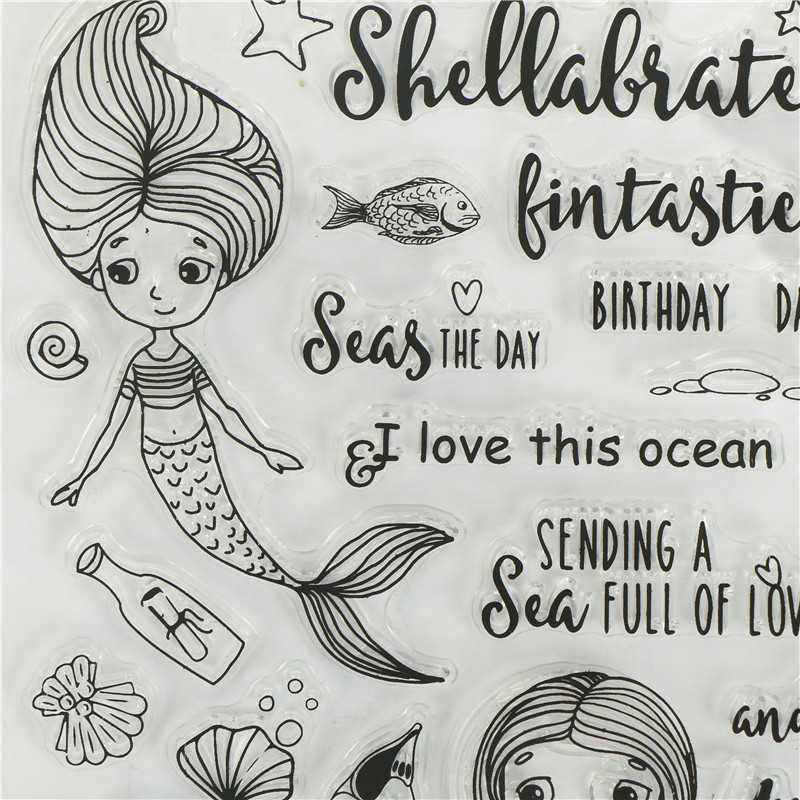 Shellabrate
fintastic
BIRTHDAY
Seas THE DAY
& I love this ocean
SENDING A
Sea FULL OF